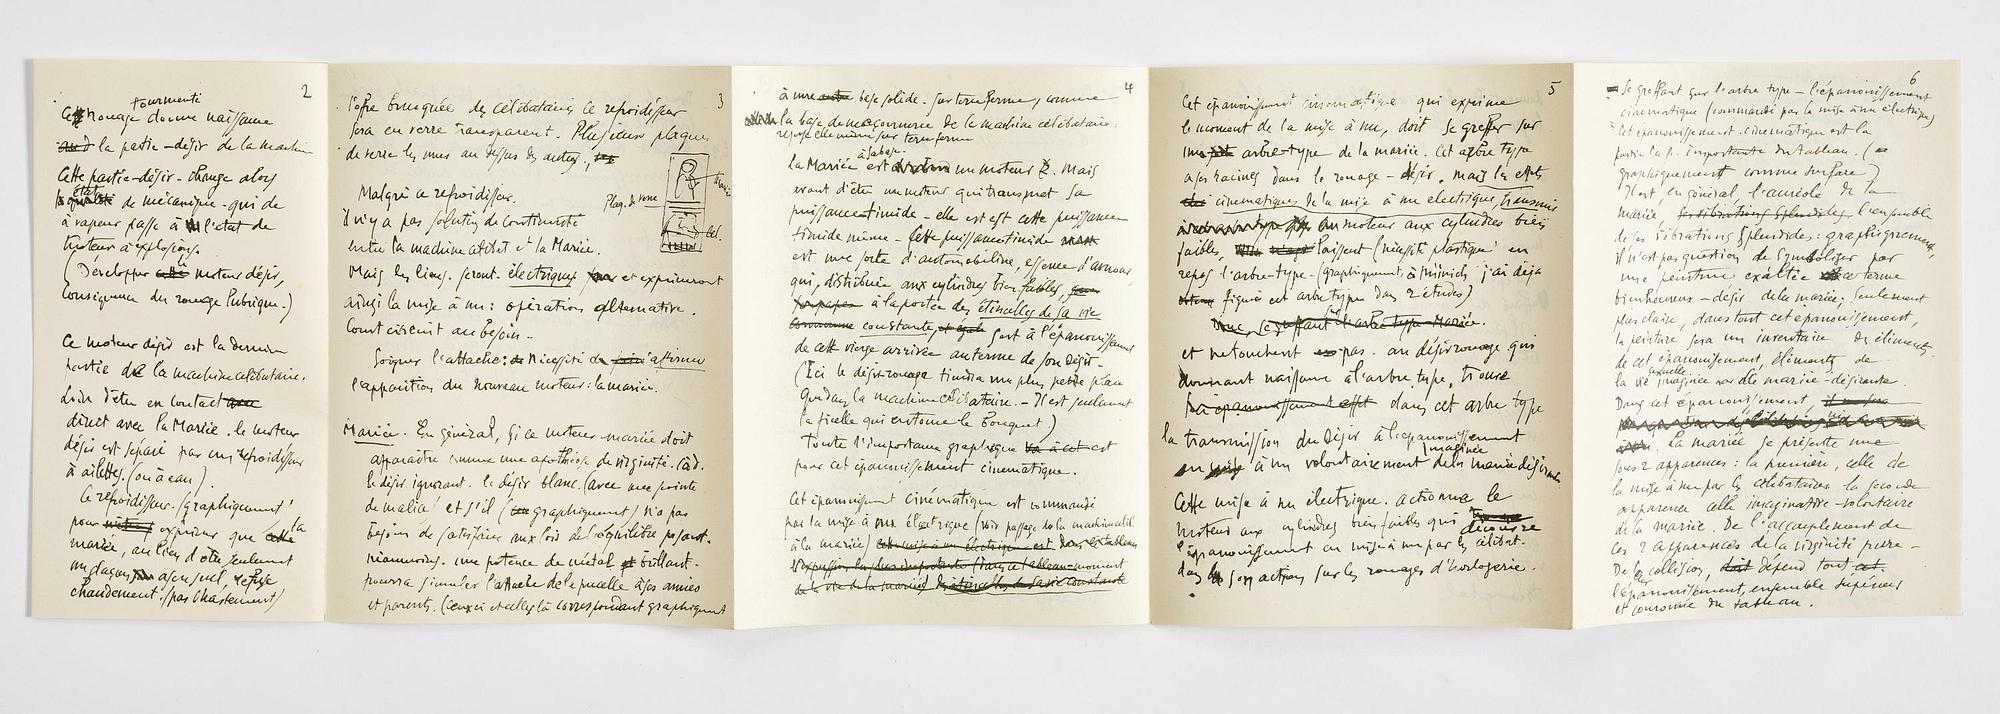 2
tourmenté
Ce rouage donne naissance
à la partie-désir de la machine
Cette partie-désir-change alors
état
de mécanique-qui de
à vapeur passe à l'etat de
moteur à explosions.
(Développer moteur désir,
conséquence du rouage lubrique.)
Ce moteur désir est la dernière
partie de la machine célibataire.
Loin d'etre en contact avec
direct avec la Mariée. le moteur
désir est séparé par un refroidisseur
à ailettes. (ou à eau).
Ce refroidisseur. (graphiquement)
pour exprimer que la
mariée, au lieu d'etre seulement
un glaçon asensuel, refuse
chaudement, (pas chastement)
3
l'offre brusquée des célibataires Ce refroidisseur
sera en verre transparent. Plusieurs plaques
de verre les unes au dessus des autres,
Malgré ce refroidisseur.
il n'y a pas solution de continuité
entre la machine célibat et la Mariée.
Mais les liens. seront. électriques et exprimeront
ainsi la mise à nu: opération alternative.
Court circuit au besoin-
Plaq. de verre
Mariée
Cel.
Soigner l'attache: Nécessité d'
l'apparition du nouveau moteur: la mariée.
Mariée. En général, si ce moteur-mariée doit
apparaître comme une apothéose de virginité. càd.
le désir ignorant. le désir blanc. (avec une pointe
de malice) et s'il (graphiquement) n'a pas
besoin de satisfaire aux lois de l'équilibre pesant.
néanmoins. une potence de métal brillant.
pourra simuler l'attache de la pucelle à ses amies
et parents. (ceux ci et celles là correspondant graphiquement
4
à une base solide. sur terre ferme, comme
la base de maçonnerie de la machine célibataire.
repose elle même sur terre ferme
à sa base.
la Mariée est un moteur. Mais
avant d'etre un moteur qui transmet sa
puissance timide-elle est cette puissance
timide même-Cette puissance timide
est une sorte d'automobiline, essence d'amour,
qui, distribuée aux cylindres bien faibles,
à la portée des étincelles de sa vie
constante, sert à l'épanouissement
de cette vierge arrivée au terme de son désir-
(Ici le désir-rouage tiendra une plus petite place
que dans la machine célibataire.-Il est seulement
la ficelle qui entoure le bouquet)
Toute l'importance graphique est
pour cet épanouissement cinématique.
Cet épanouissement cinématique est commandé
par la mise à nu électrique (voir passage de la machine célib
à la mariée) cette mise à nu électrique est dans ce tableau
l'expression la plus importante (dans ce tableau-moment
de la vie de la mariée) des étincelles de sa vie constante
5
Cet épanouissement cinématique qui exprime
le moment de la mise à nu, doit se greffer sur
un arbre-type de la mariée. Cet arbre type
a ses racines dans le rouage-désir. mais les effets
cinématiques de la mise à nu électrique, transmis
au moteur aux cylindres bien
faibles, laissent (nécessité plastique) en
repos l'arbre-type-(graphiquement, à Munich j'ai déjà
figuré cet arbre type dans 2 études)
Donc, se greffant sur l'arbre type-Mariée.
et ne touchent pas. au désir rouage qui
donnant naissance à l'arbre type, trouve
dans cet arbre type
la transmission du désir à l'epanouissement
imaginée
à nu volontairement de la mariée désirante
Cette mise à nu électrique. actionne le
moteur aux cylindres bien faibles qui
découvre
l'épanouissement en mise à nu par les célibat.
dans son action sur les rouages d'horlogerie.
6
Se greffant sur l'arbre type-l'épanouissement
cinématique (commandé par la mise à nu électrique)
Cet epanouissement. cinématique est la
partie la plus importante du tableau. (
graphiquement comme surface)
Il est, en général l'auréole de la
mariée l'ensemble
de ses vibrations splendides: graphiquement,
il n'est pas question de symboliser par
une peinture exaltée ce terme
bienheureux-désir de la mariée; Seulement
plus claire, dans tout cet épanouissement,
la peinture sera un inventaire des éléments
de cet épanouissement, éléments de
sexuelle
la vie imaginée par elle mariée-désirante.
Dans cet épanouissement,
La mariée se présente nue
sous 2 apparences: la première, celle de
la mise à nu par les célibataires la seconde
apparence celle imaginative-volontaire
de la mariée. De l'accouplement de
ces 2 apparences de la virginité pure-
De leur collision, dépend tout
l'épanouissement, ensemble supérieur
et couronne du tableau.